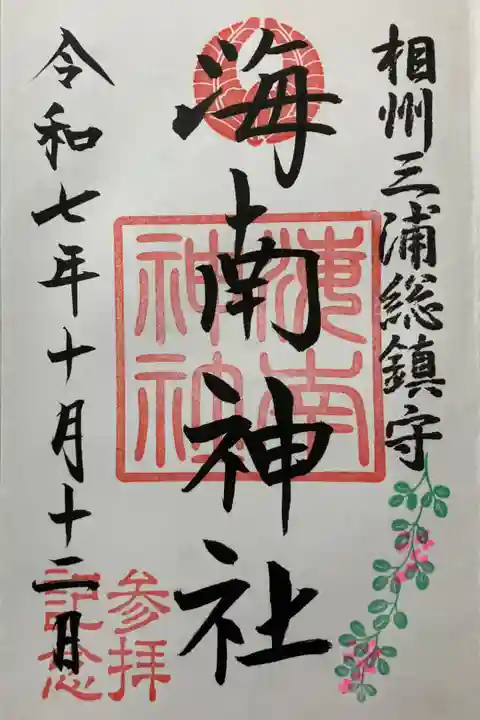 相州三浦総鎮守
海南神社
海南
神社
令和七年十月十二日
参拝
記念